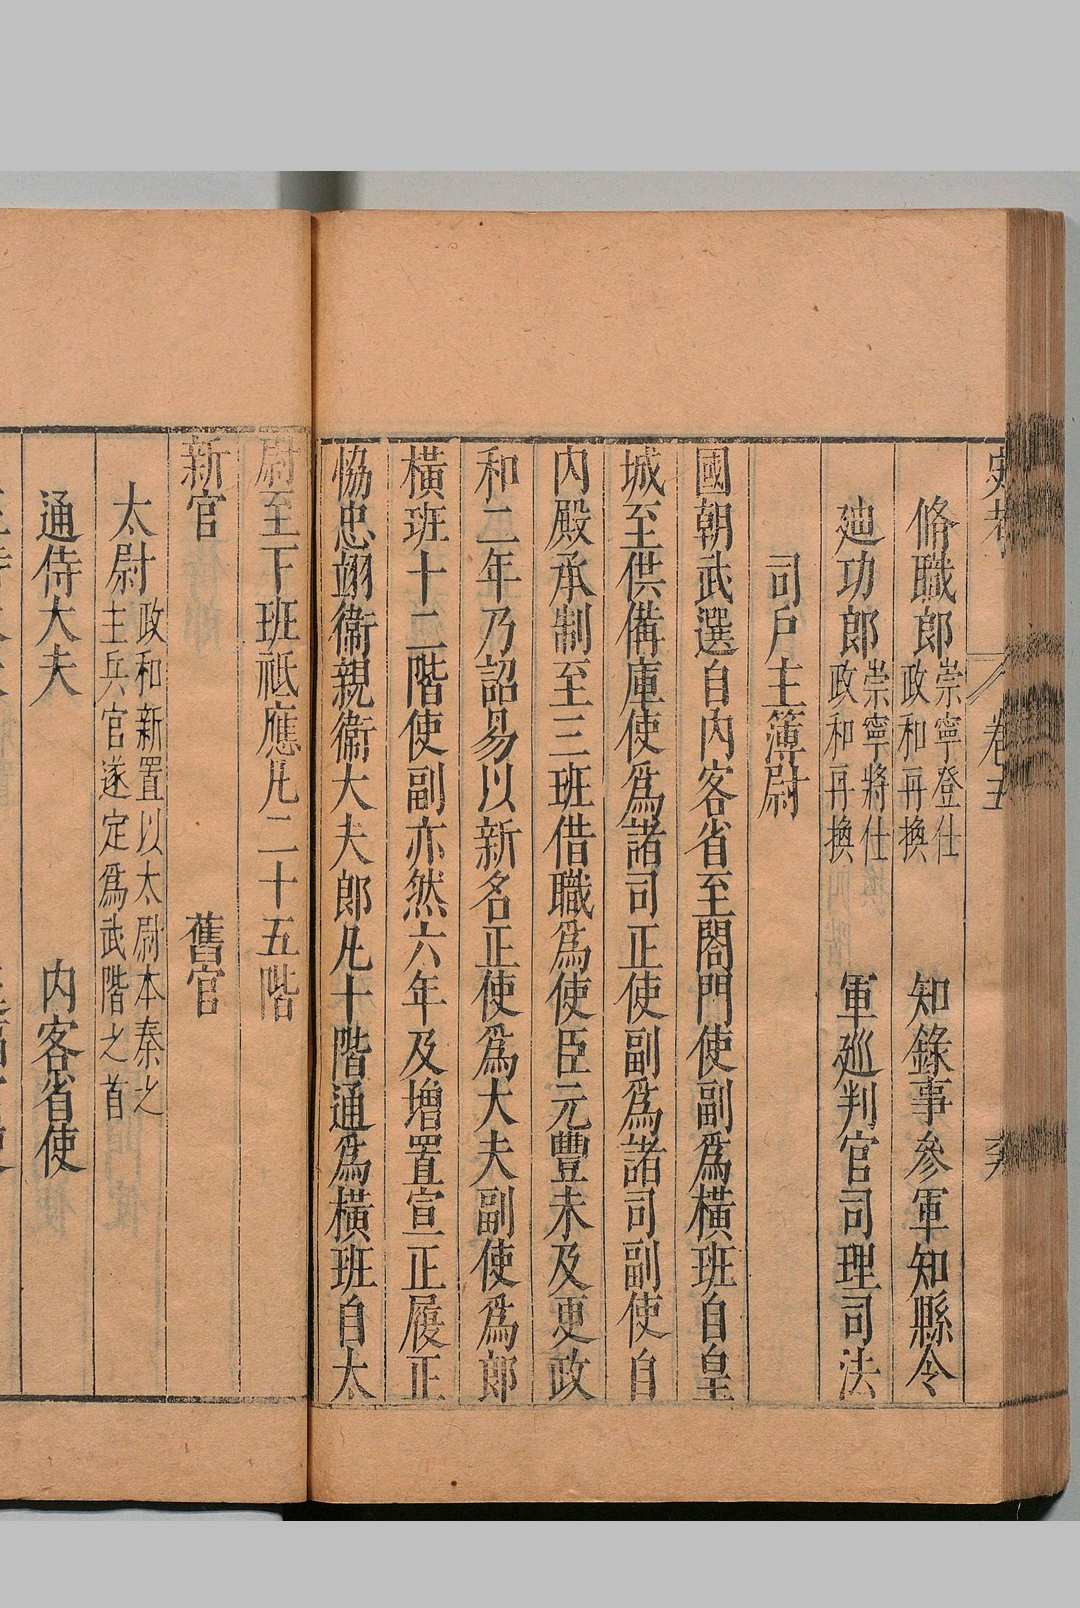 卷五
脩職郎 崇寧登仕 政和再換 知錄事參軍知縣令
廸功郎 崇寧將仕 政和再換 軍巡判官司理司法
司戶主簿尉
國朝武選自內客省至閤門使副爲橫班自皇
城至供備庫使爲諸司正使副爲諸司副使自
內殿承制至三班借職爲使臣元豐未及更政
和二年乃詔易以新名正使爲大夫副使爲郎
橫班十二階使副亦然六年及增置宣正履正
恊忠翊衞親衞大夫郎凡十階通爲橫班自太
尉至下班祗應凡二十五階
新官 舊官
太尉 政和新置以太尉本秦之 主兵官遂定爲武階之首
通侍大夫 內客省使